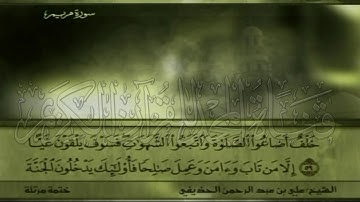 سورة مريم
خَلْفٌ أَضَاعُوا۟ ٱلصَّلَوٰةَ وَٱتَّبَعُوا۟ ٱلشَّهَوَٰتِ فَسَوْفَ يَلْقَوْنَ غَيًّا
٥٩ إِلَّا مَن تَابَ وَءَامَنَ وَعَمِلَ صَـٰلِحًا فَأُو۟لَـٰٓئِكَ يَدْخُلُونَ ٱلْجَنَّةَ
الشيخ/علي بن عبد الرحمن الحذيفي
ختمة مرتلة